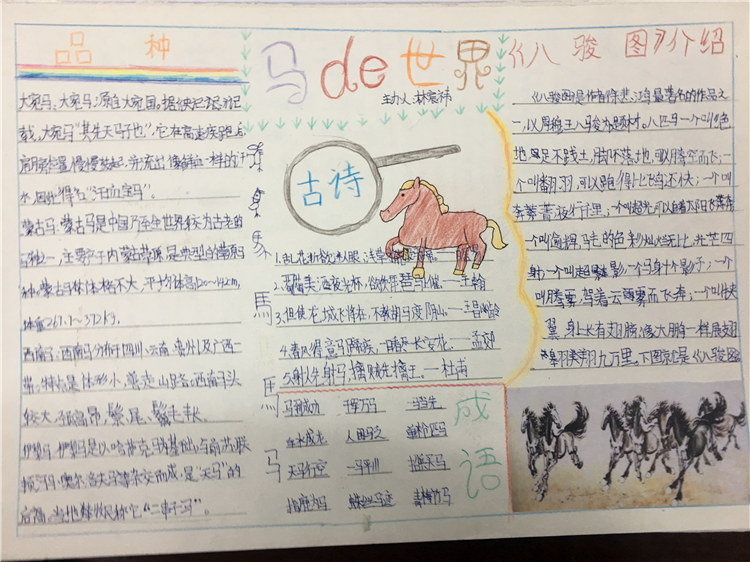 品种
马de世界
《八骏图》介绍
主办人:林宸沛
大宛马,大宛马:源自大宛国。据《史记》记
载,大宛马“其先天马子也”,它在高速疾跑后
肩膀位置慢慢鼓起,并流出像鲜血一样的汗
水,因此得名“汗血宝马”。
蒙古马:蒙古马是中国乃至全世界较为古老的
马种之一,主要产于内蒙古草原,是典型的草原马
种。蒙古马体格不大,平均体高120~142cm,
体重267.7~372kg。
西南马:西南马分布于四川、云南、贵州及广西一
带,特点是体形小,善走山路。西南马头
较大,颈高昂,鬃、尾、鬣毛丰长。
伊犁马:伊犁马是以哈萨克马为基础,与前苏联
顿河马、奥尔洛夫马等杂交而成,是“天马”的
后裔,
馬
馬
马
古诗
1.乱花渐欲迷人眼,浅草
2.葡萄美酒夜光杯,欲饮琵琶马上催。——王翰
3.但使龙城飞将在,不教胡马度阴山。——王昌龄
4.春风得意马蹄疾,一日看尽长安花。——孟郊
5.射人先射马,擒贼先擒王。——杜甫
成语
马到成功 千军万马 一马当先
车水马龙 人困马乏 单枪匹马
天马行空 一马平川 招兵买马
指鹿为马 蛛丝马迹 青梅竹马
《八骏图》是作者徐悲鸿最著名的作品之
一,以周穆王八骏为题材。八匹马一个叫绝
地,足不践土,脚不落地,可以腾空而飞;一
个叫翻羽,可以跑得比飞鸟还快;一个叫
奔菁,夜行千里;一个叫超光,可以追着太阳飞奔;
一个叫逾辉,马毛的色彩灿烂无比,光芒四
射;一个叫超影,一个马身十个影子;一个
叫腾雾,驾着云雾而飞奔;一个叫挟
翼,身上长有翅膀,像大鹏一样展翅
翱翔九万里。下图就是《八骏图》